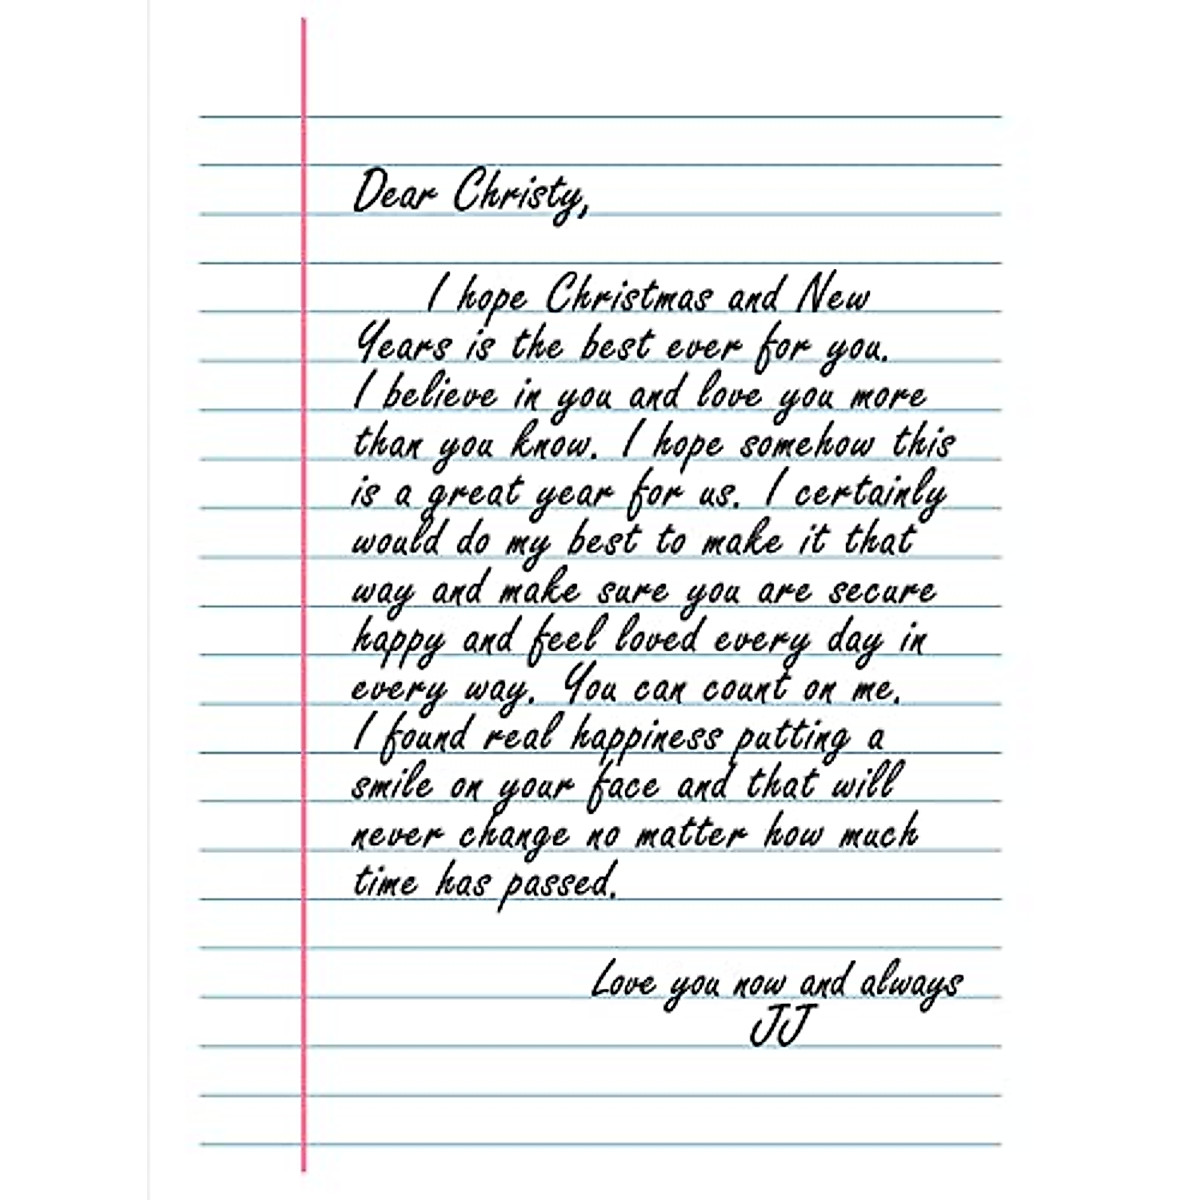 Dear Christy,
I hope Christmas and New
Years is the best ever for you.
I believe in you and love you more
than you know. I hope somehow this
is a great year for us. I certainly
would do my best to make it that
way and make sure you are secure
happy and feel loved every day in
every way. You can count on me.
I found real happiness putting a
smile on your face and that will
never change no matter how much
time has passed.
Love you now and always
JJ